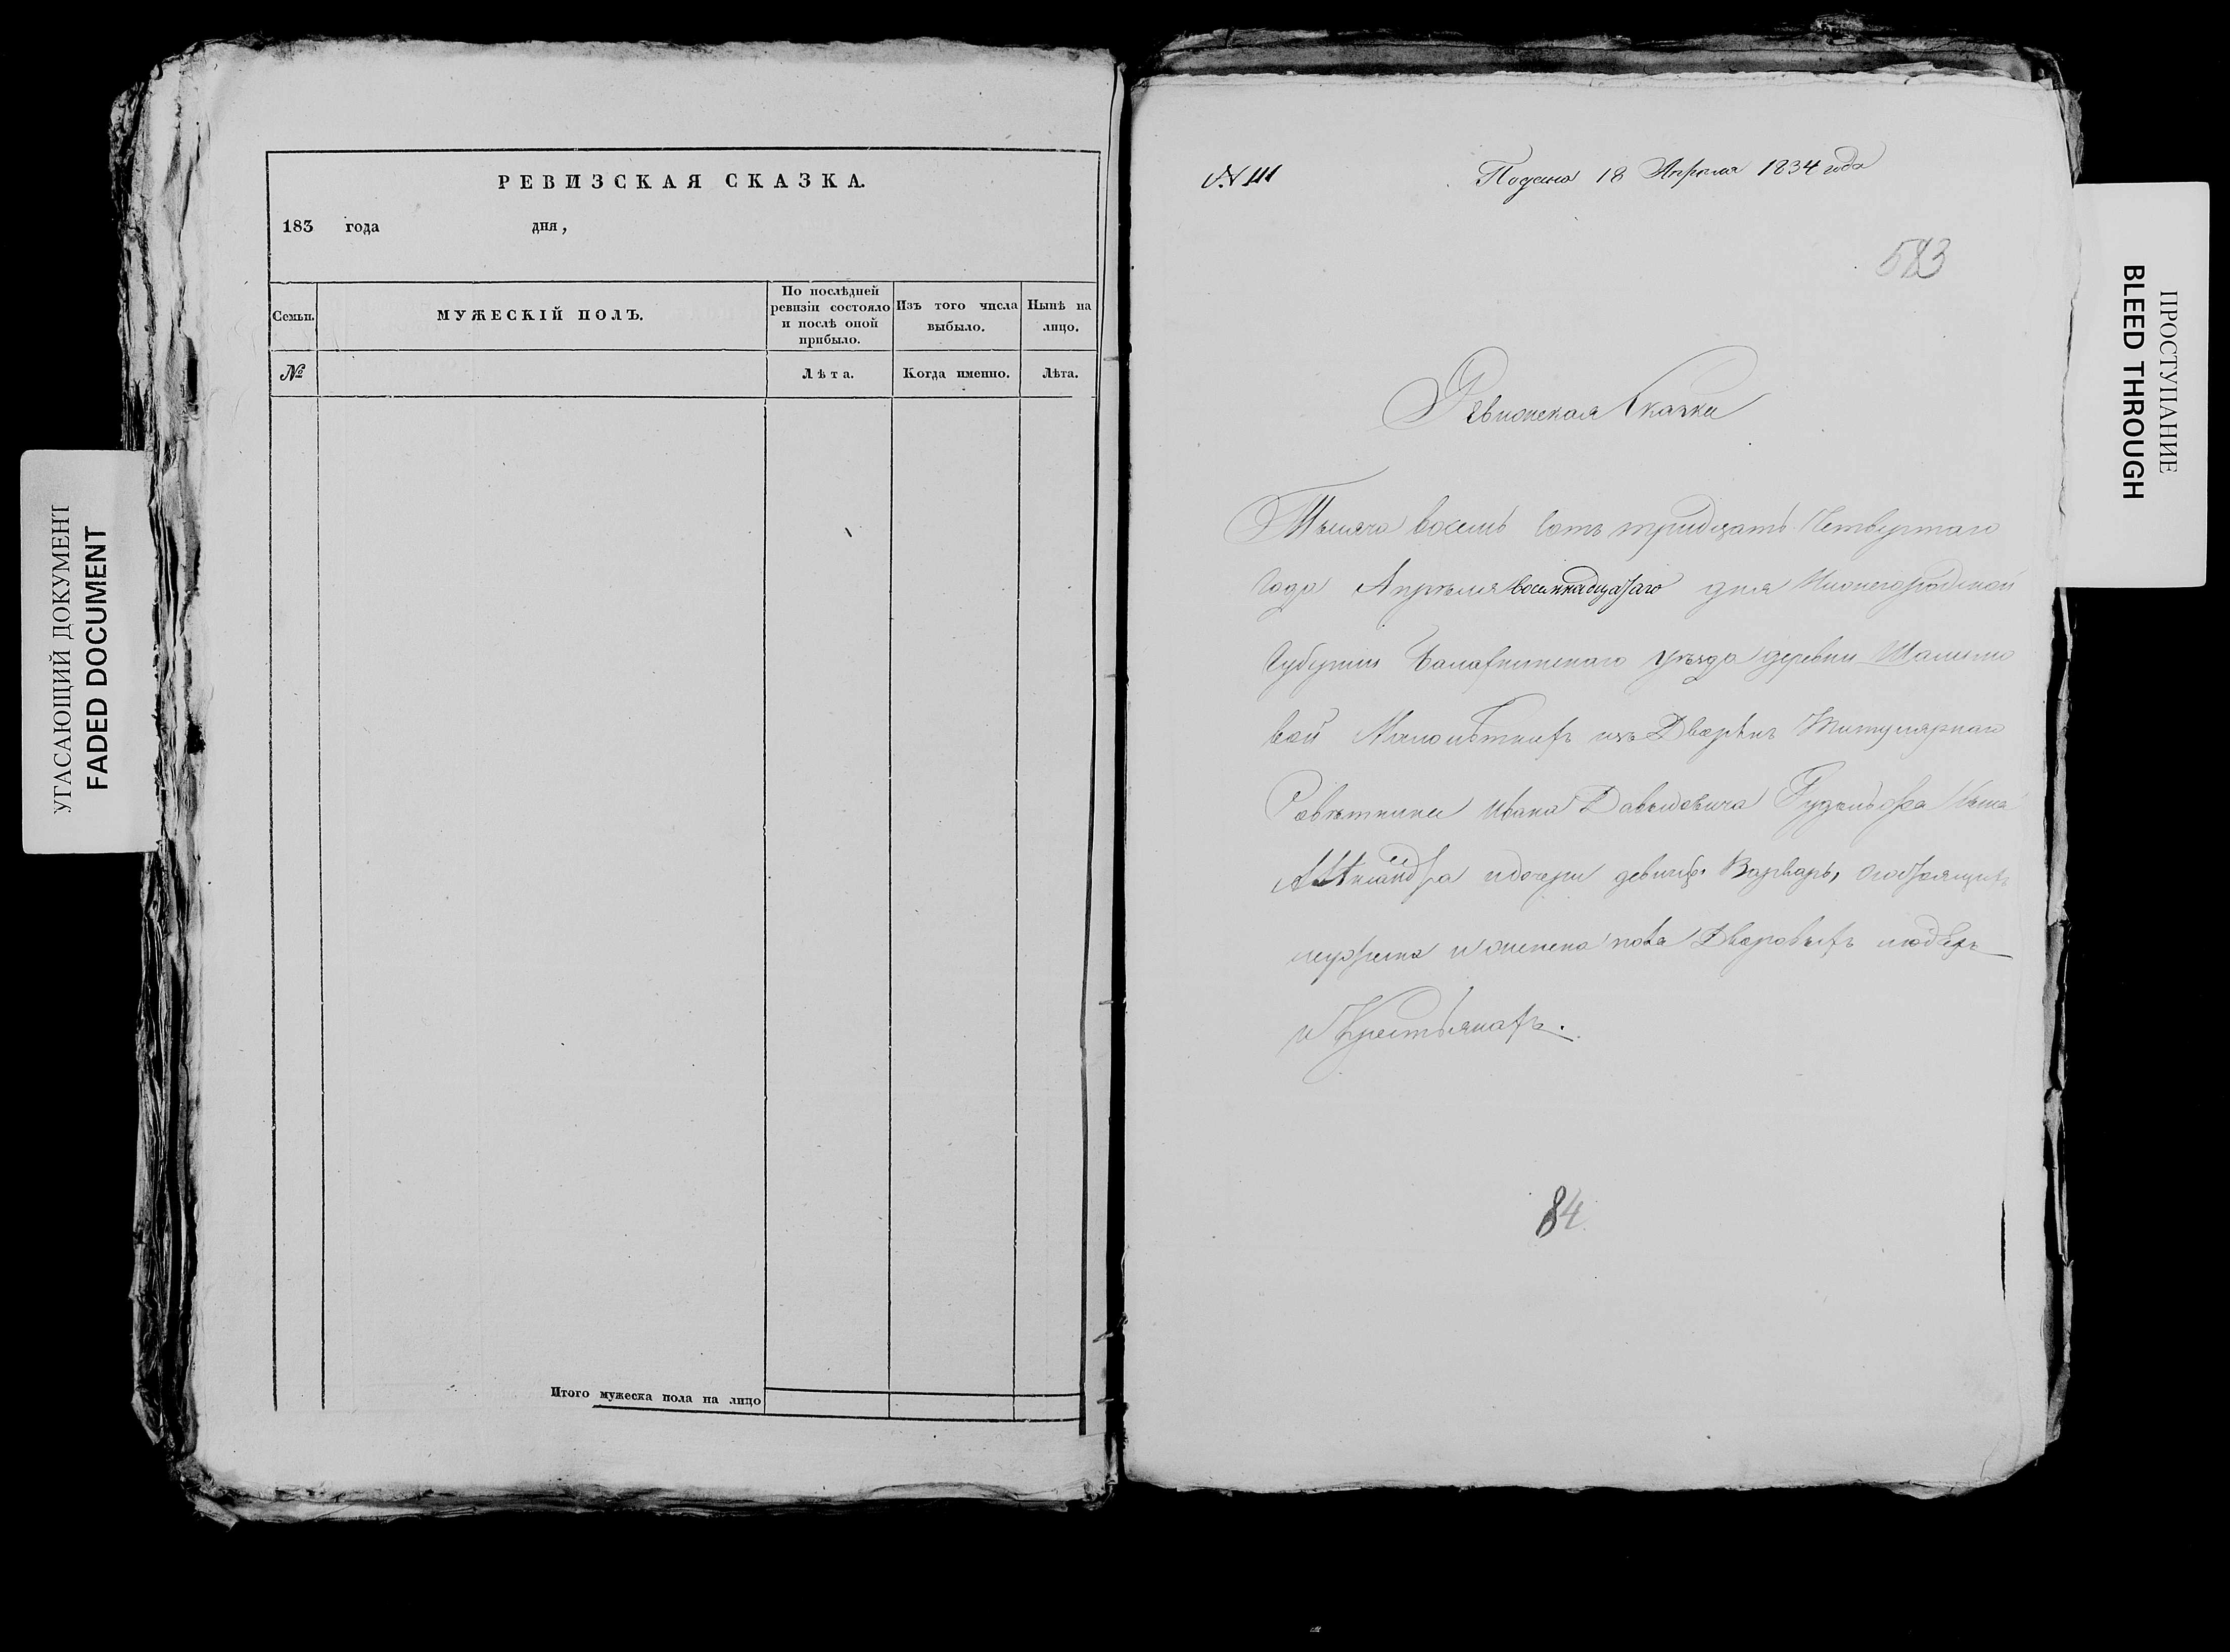 УГАСАЮЩИЙ ДОКУМЕНТ
FADED DOCUMENT
РЕВИЗСКАЯ СКАЗКА.
183 года дня,
Семьи.
МУЖЕСКІЙ ПОЛЪ.
По послѣдней
ревизіи состояло
и послѣ оной
прибыло.
Изъ того числа
выбыло.
Нынѣ на
лицо.
№
Лѣта.
Когда именно.
Лѣта.
Итого мужеска пола на лицо
№ 111
Подана 18 Апреля 1834 года
583
Ревижская Сказка
Тысяча восемь сотъ тридцать Четвертаго
Года Апреля восемнадцатаго дня Нижегородской
Губернии Балахнинскаго уѣзда деревни
вой Малолѣтнихъ изъ Дворянъ Титулярнаго
Совѣтника Ивана Давыдовича
и дочери девицы Варвары, о состоящихъ
мужеска и женска пола Дворовыхъ людехъ
и Крестьянахъ.
84
ПРОСТУПАНИЕ
BLEED THROUGH